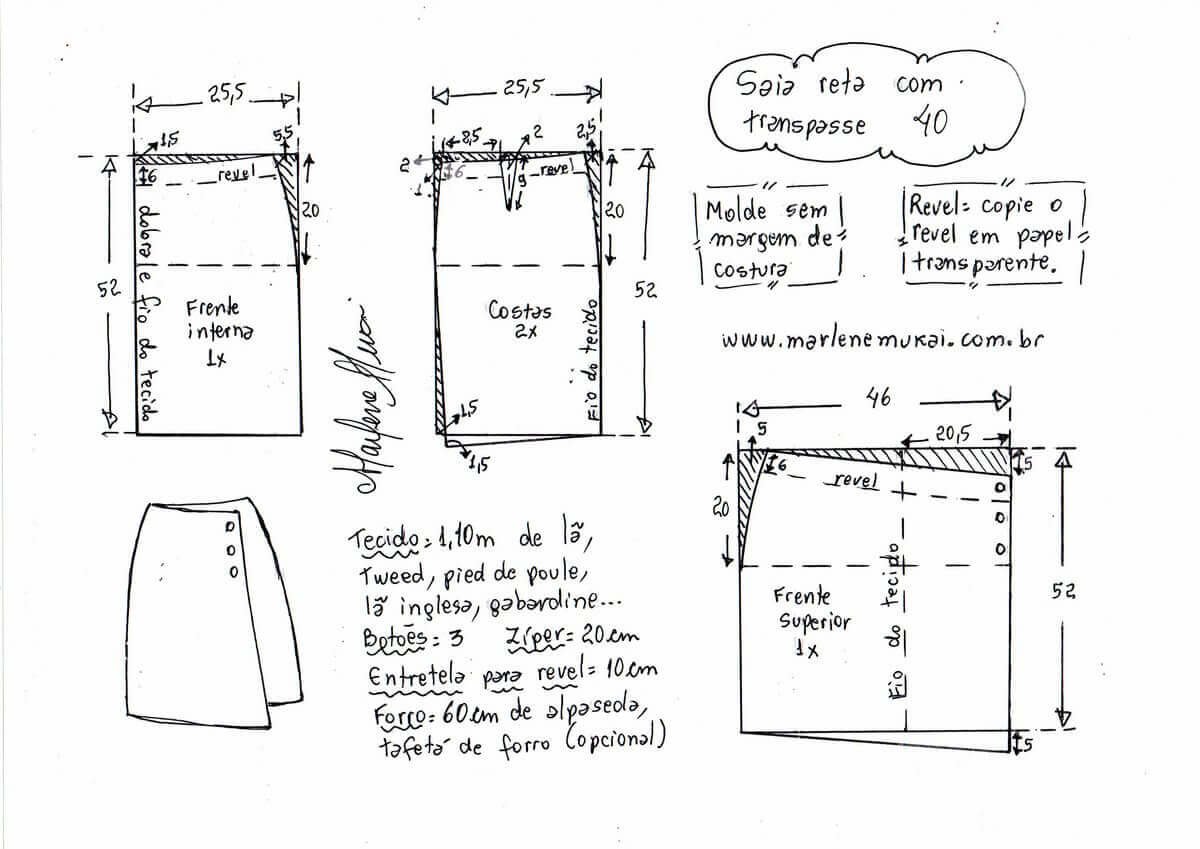 Saia reta com
transpasse 40
Molde sem
margem de
costura
Revel= copie o
revel em papel
transparente.
www.marlenemukai.com.br
25,5
1,5
5,5
6
revel
20
52
dobra e fio do tecido
Frente
interna
1x
25,5
8,5
2
2,5
2
1
6
9
revel
20
52
Costas
2x
Fio do tecido
1,5
1,5
46
5
20,5
6
revel
5
20
52
Fio do tecido
Frente
Superior
1x
5
Tecido= 1,10m de lã,
Tweed, pied de poule,
lã inglesa, gabardine...
Botões= 3 Zíper= 20cm
Entretela para revel= 10cm
Forro= 60cm de alpaseda,
tafetá de forro (opcional)